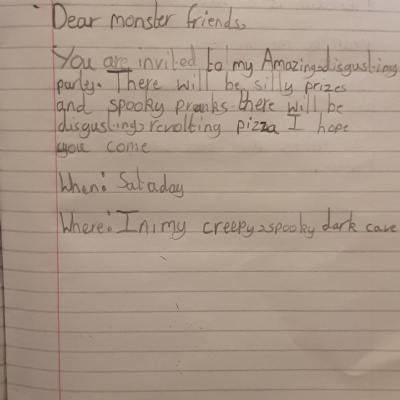 Dear monster friends,
You are invited to my Amazing,disgusting
party. There will be silly prizes
and spooky pranks there will be
disgusting,revolting pizza I hope
you come
When: Sataday
Where: In my creepy,spooky dark cave